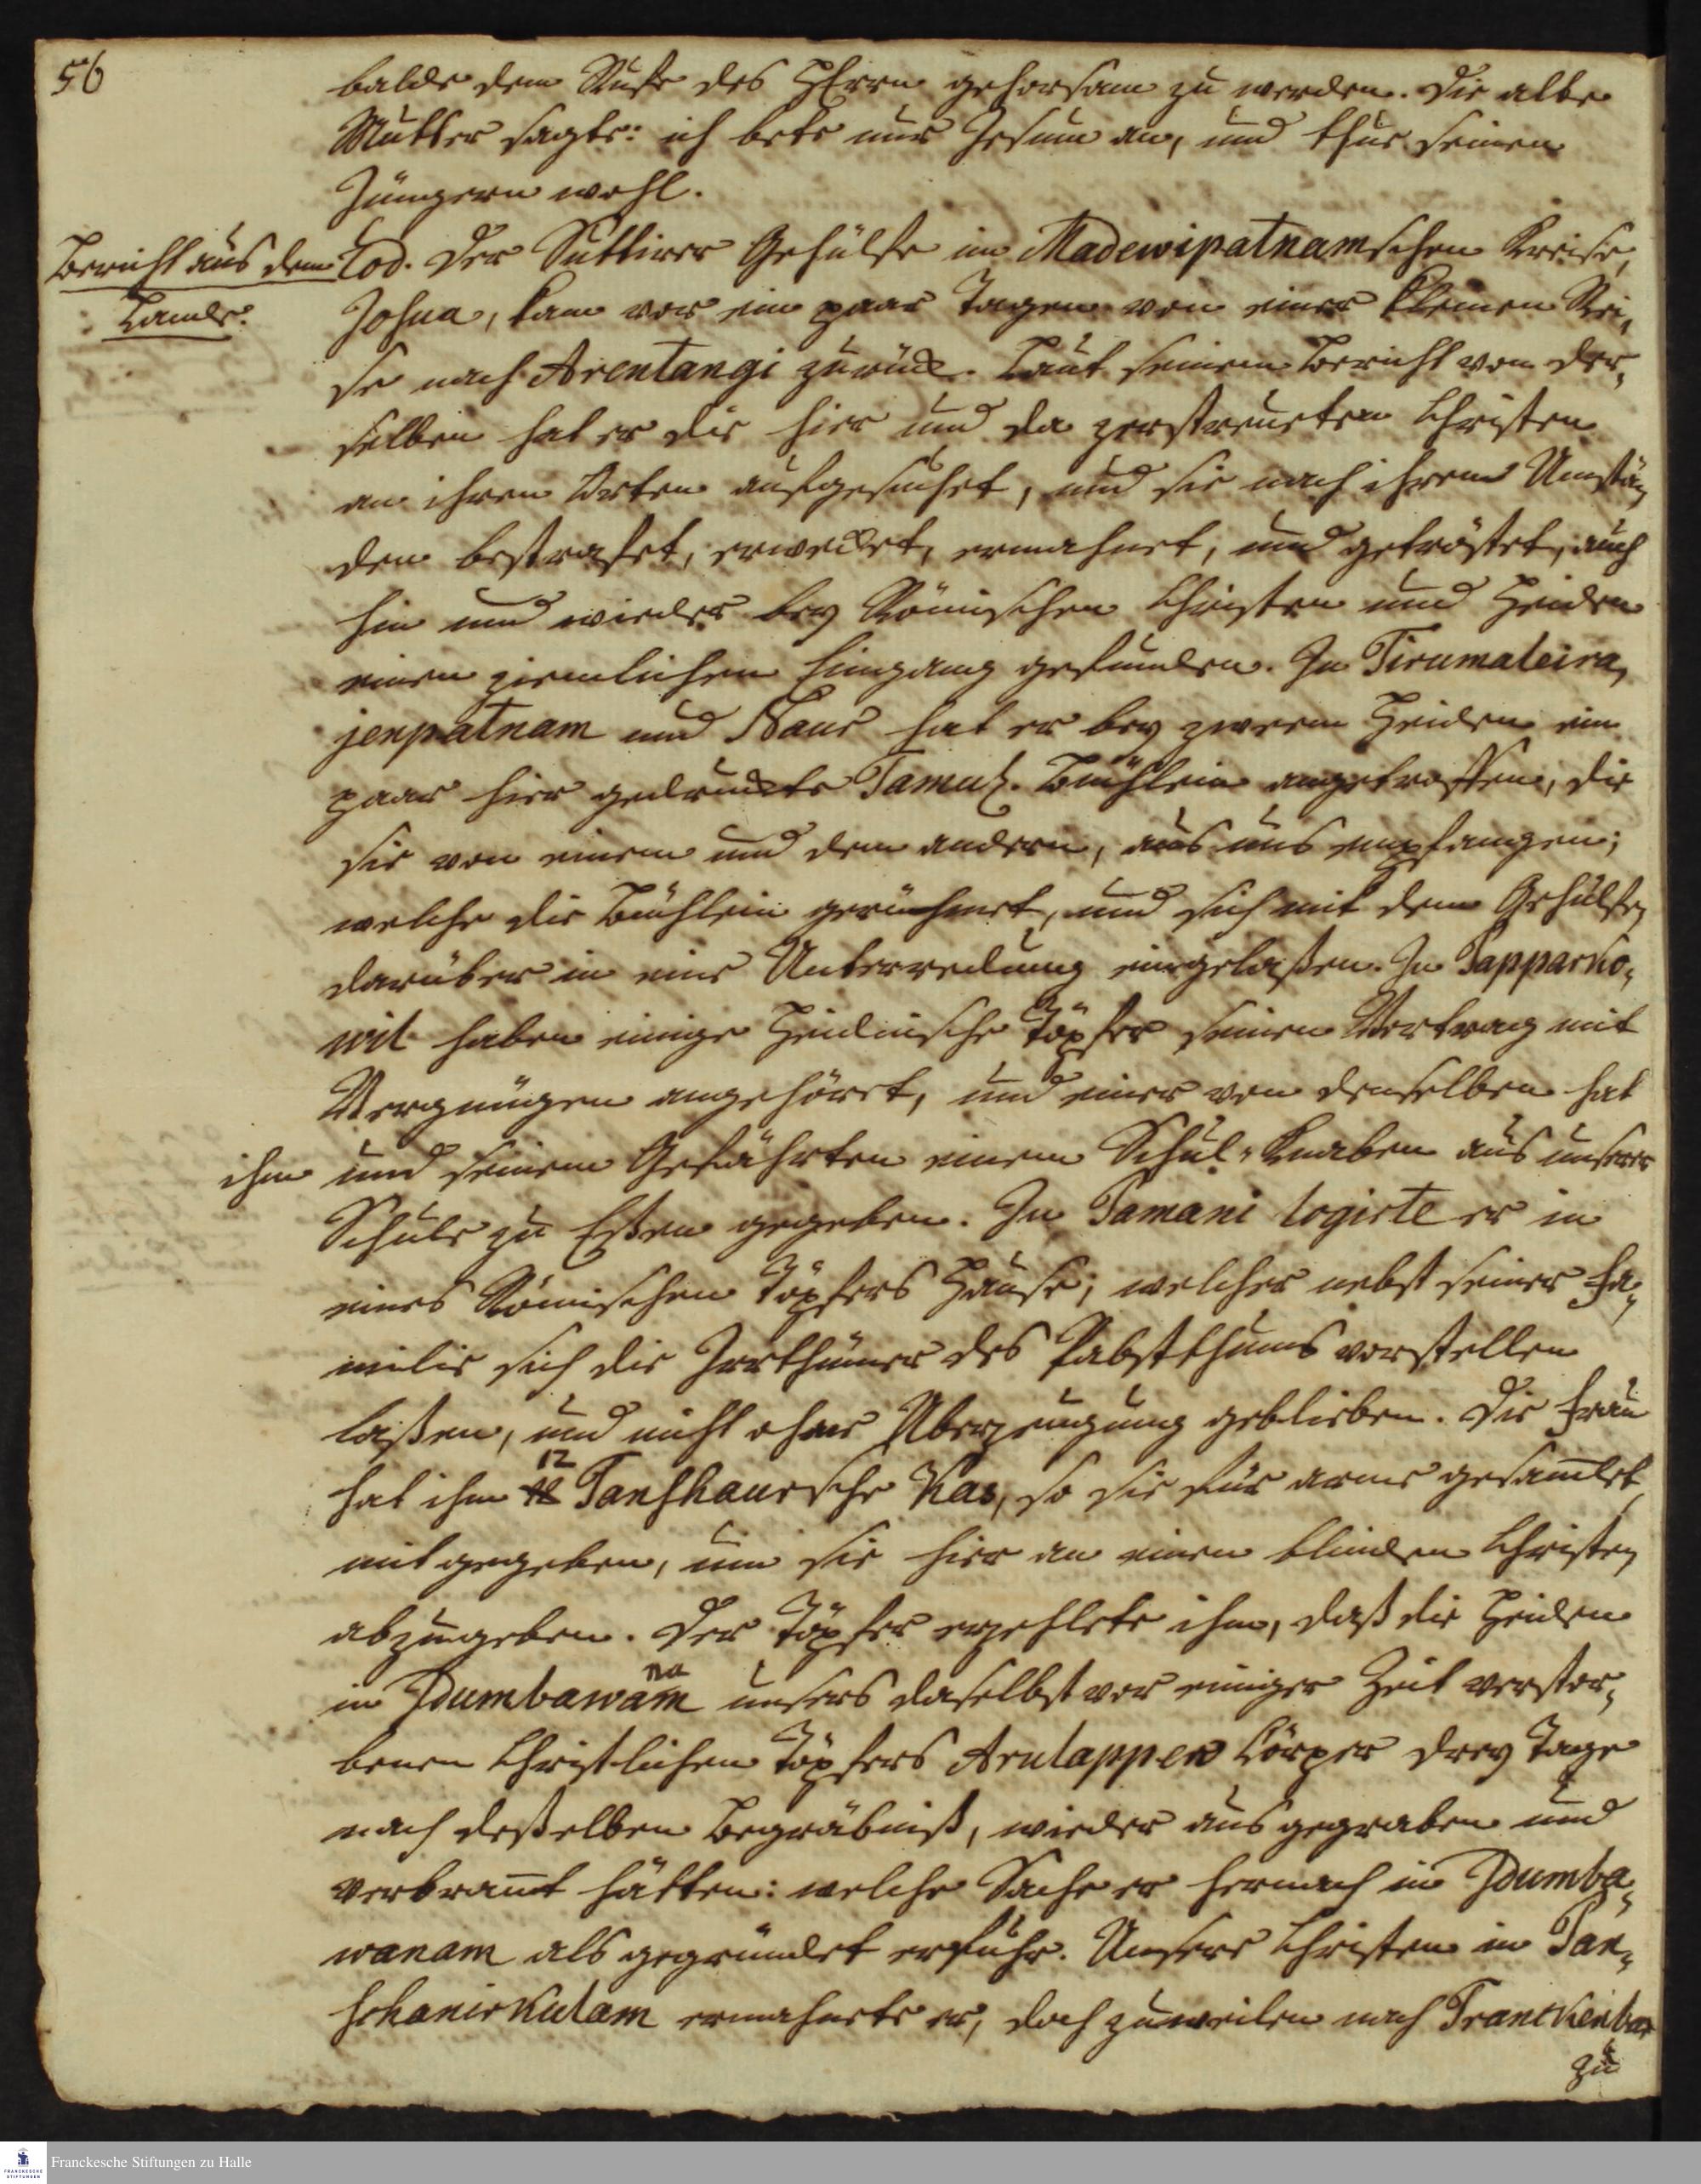 56
balde dem Ruffe des HErrn gehorsam zu werden. Die alte
Mutter sagte: ich bete nur Jesum an, und thue seinen
Jüngern wohl.
Bericht aus dem
Lande.
Eod. Der Suttirer Gehülfe im Madewipatnamschen Kreise,
Josua, kam vor ein paar Tagen von einer kleinen Rei„
se nach Arentangi zurück. Laut seinem Bericht von der„
selben hat er die hier und da zerstreueten Christen
an ihren Orten aufgesuchet, und sie nach ihren Umstän„
den bestrafet, erwecket, ermahnet, und getröstet, auch
hin und wieder bey Römischen Christen und Heiden
einen ziemlichen Eingang gefunden. In Tirumaleira„
jenpatnam und Naur hat er bey zween Heiden ein
paar hier gedruckte Tamul. Büchlein angetroffen, die
sie von einem und dem andern, aus uns empfangen;
welche die Büchlein gerühmet, und sich mit dem Gehülfen
darüber in eine Unterredung eingelaßen. In Papparko„
wil haben einige Heidnische Töpfer seinen Vortrag mit
Vergnügen angehöret, und einer von denselben hat
ihm und seinem Gefährten einem Schul-Knaben aus unserer
Schule zu Eßen gegeben. In Pamani logirte er in
eines Römischen Töpfers Hause, welcher nebst seiner Fa„
milie sich die Irrthümer des Pabstthums vorstellen
laßen, und nicht ohne Uberzeugung geblieben. Die Frau
hat ihm 12 Tanshaursche Kas, so sie für arme gesamlet
mitgegeben, um sie hier an einen blinden Christen
abzugeben. Der Töpfer erzehlete ihm, daß die Heiden
in Idumbawanam unsers daselbst vor einiger Zeit verstor„
benen Christlichen Töpfers Arulappen Cörper drey Tage
nach deßelben Begräbniß, wieder ausgegraben und
verbrannt hätten: welche Sache er hernach in Idumba„
wanam als gegründet erfuhr. Unsere Christen in Pan„
schanirkulam ermahnete er, doch zuweilen nach Tranckenbar
zu
Franckesche Stiftungen zu Halle
FRANCKESCHE STIFTUNGEN